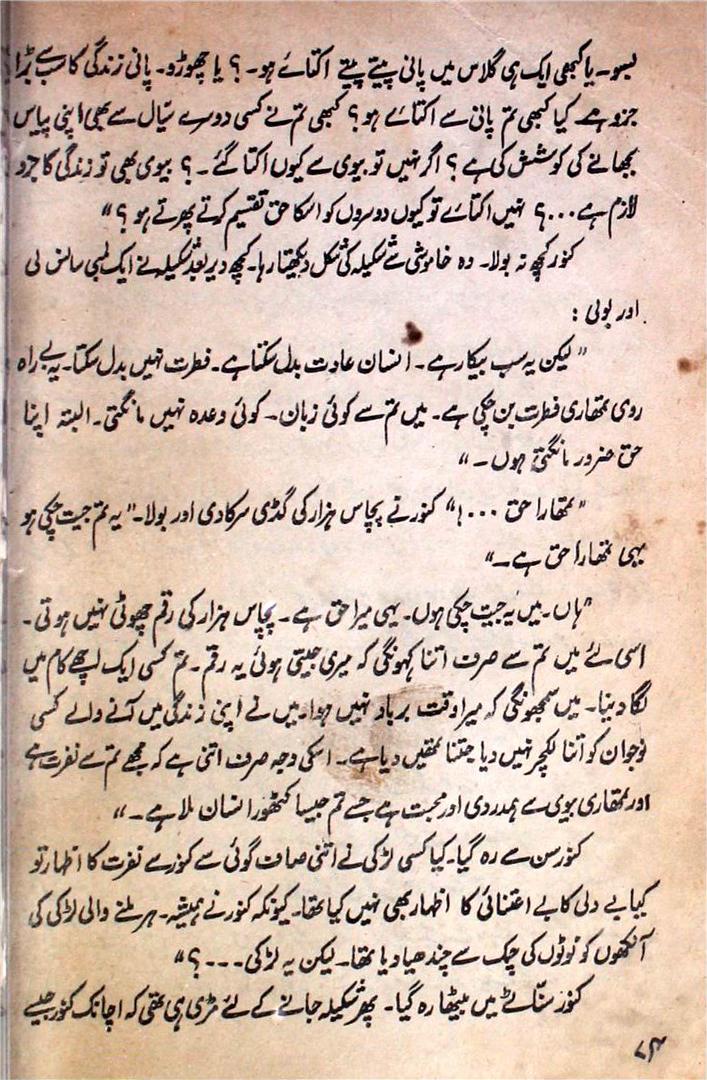 بسو۔ یا کبھی ایک ہی گلاس میں پانی پیتے پیتے اکتائے ہو۔ ؟ یا چھوڑو۔ پانی زندگی کا سب سے بڑا
جزو ہے۔ کیا کبھی تم پانی سے اکتائے ہو؟ کبھی تم نے کسی دوسرے سیّال سے بھی اپنی پیاس
بجھانے کی کوشش کی ہے؟ اگر نہیں تو بیوی سے کیوں اکتا گئے۔ ؟ بیوی بھی تو زندگی کا جزو
لازم ہے...؟ نہیں اکتائے تو کیوں دوسروں کو اسکا حق تقسیم کرتے پھرتے ہو؟"
کنور کچھ نہ بولا۔ وہ خاموشی سے شکیلہ کی شکل دیکھتا رہا۔ کچھ دیر بعد شکیلہ نے ایک لمبی سانس لی
اور بولی :
"لیکن یہ سب بیکار ہے۔ انسان عادت بدل سکتا ہے۔ فطرت نہیں بدل سکتا۔ یہ بے راہ
روی تمھاری فطرت بن چکی ہے۔ میں تم سے کوئی زبان۔ کوئی وعدہ نہیں مانگتی۔ البتہ اپنا
حق ضرور مانگتی ہوں۔"
"تمھارا حق ...!" کنور نے پچاس ہزار کی گڈی سرکا دی اور بولا۔ "یہ تم جیت چکی ہو
یہی تمھارا حق ہے۔"
"ہاں۔ میں یہ جیت چکی ہوں۔ یہی میرا حق ہے۔ پچاس ہزار کی رقم چھوٹی نہیں ہوتی۔
اسی لئے میں تم سے صرف اتنا کہونگی کہ میری جیتی ہوئی یہ رقم۔ تم کسی ایک اچھے کام میں
لگا دینا۔ میں سمجھونگی کہ میرا وقت برباد نہیں ہوا۔ میں نے اپنی زندگی میں آنے والے کسی
نوجوان کو اتنا لکچر نہیں دیا جتنا تمھیں دیا ہے۔ اسکی وجہ صرف اتنی ہے کہ مجھے تم سے نفرت ہے
اور تمھاری بیوی سے ہمدردی اور محبت ہے جسے تم جیسا کٹھور انسان ملا ہے۔"
کنور سن سے رہ گیا۔ کیا کسی لڑکی نے اتنی صاف گوئی سے کنور سے نفرت کا اظہار تو
کیا بے دلی کا بے اعتنائی کا اظہار بھی نہیں کیا تھا۔ کیونکہ کنور نے ہمیشہ۔ ہر ملنے والی لڑکی کی
آنکھوں کو نوٹوں کی چمک سے چندھیا دیا تھا۔ لیکن یہ لڑکی ---؟"
کنور سنّاٹے میں بیٹھا رہ گیا۔ پھر شکیلہ جانے کے لئے مڑی ہی تھی کہ اچانک کنور جیسے
۷۴